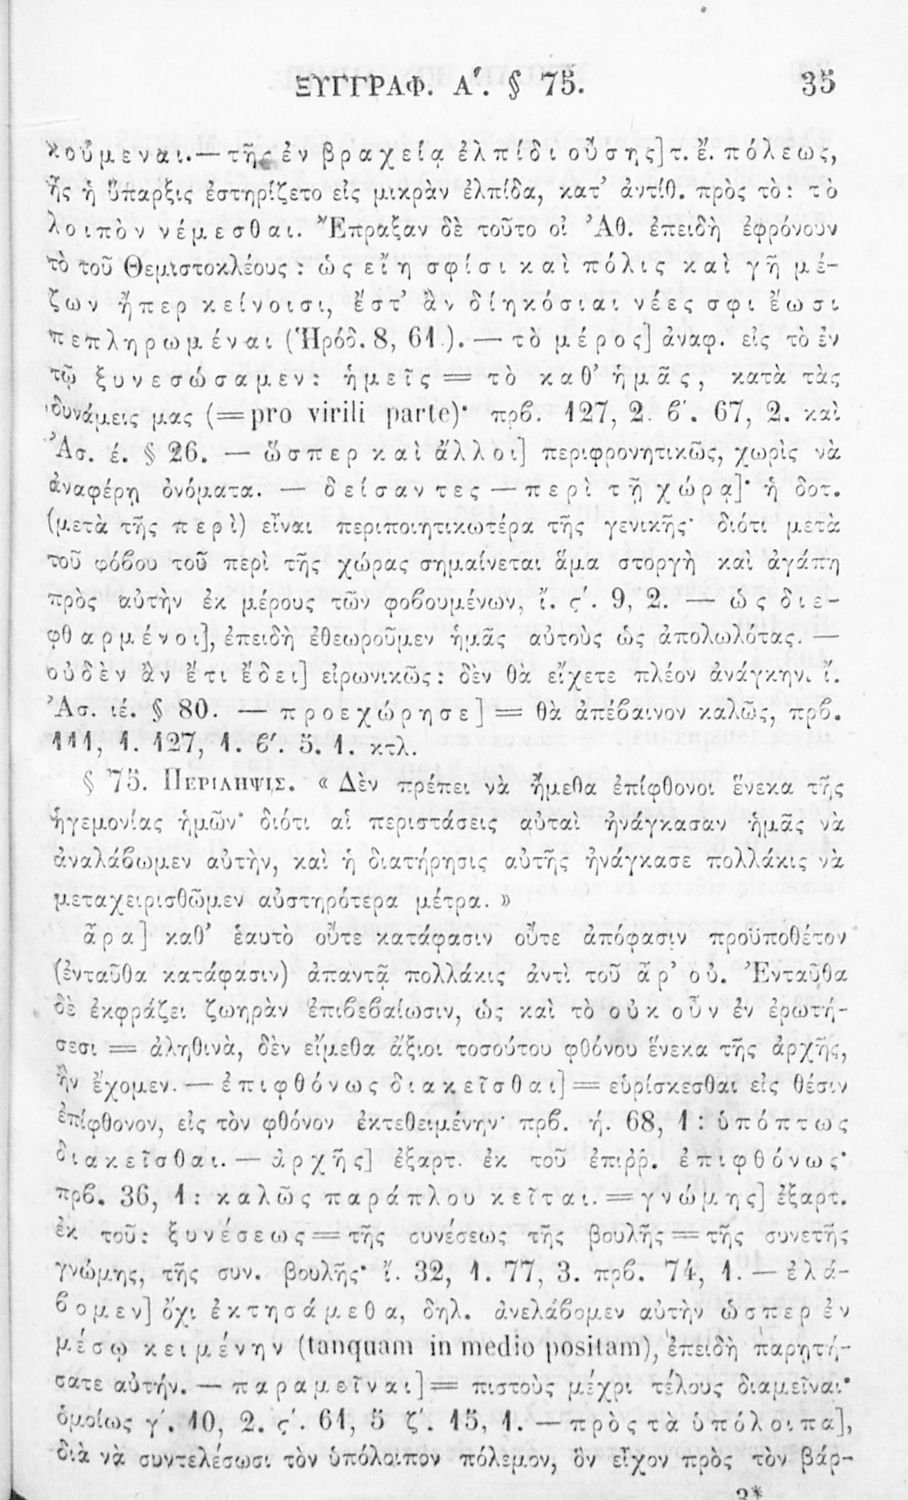 ΞΥΓΓΡΑΦ. Α΄. § 75. 35
κούμεναι.— τῆς ἐν βραχείᾳ ἐλπίδι οὔσης] τ. ἔ. πόλεως,
ἧς ἡ ὕπαρξις ἐστηρίζετο εἰς μικρὰν ἐλπίδα, κατ’ ἀντίθ. πρὸς τὸ: τὸ
λοιπὸν νέμεσθαι. Ἔπραξαν δὲ τοῦτο οἱ Ἀθ. ἐπειδὴ ἐφρόνουν
τὸ τοῦ Θεμιστοκλέους : ὡς εἴη σφίσι καὶ πόλις καὶ γῆ μέ-
ζων ἤπερ κείνοισι, ἔστ’ ἂν διηκόσιαι νέες σφι ἔωσι
πεπληρωμέναι (Ἡρόδ. 8, 61.). — τὸ μέρος] ἀναφ. εἰς τὸ ἐν
τῷ ξυνεσώσαμεν: ἡμεῖς = τὸ καθ’ ἡμᾶς, κατὰ τὰς
δυνάμεις μας (= pro virili parte)· πρβ. 127, 2. β΄. 67, 2. καὶ
Ἀσ. έ. § 26. — ὥσπερ καὶ ἄλλοι] περιφρονητικῶς, χωρὶς νὰ
ἀναφέρῃ ὀνόματα. — δείσαντες — περὶ τῇ χώρᾳ]· ἡ δοτ.
(μετὰ τῆς περὶ) εἶναι περιποιητικωτέρα τῆς γενικῆς· διότι μετὰ
τοῦ φόβου τοῦ περὶ τῆς χώρας σημαίνεται ἅμα στοργὴ καὶ ἀγάπη
πρὸς αὐτὴν ἐκ μέρους τῶν φοβουμένων, ἴ. ς΄. 9, 2. — ὡς διε-
φθαρμένοι], ἐπειδὴ ἐθεωροῦμεν ἡμᾶς αὐτοὺς ὡς ἀπολωλότας. —
οὐδὲν ἂν ἔτι ἔδει] εἰρωνικῶς: δὲν θὰ εἴχετε πλέον ἀνάγκην. ἴ.
Ἀσ. ιέ. § 80. — προεχώρησε] = θὰ ἀπέβαινον καλῶς, πρβ.
111, 1. 127, 1. β΄. 5. 1. κτλ.
§ 75. ΠΕΡΙΛΗΨΙΣ. « Δὲν πρέπει νὰ ἤμεθα ἐπίφθονοι ἕνεκα τῆς
ἡγεμονίας ἡμῶν· διότι αἱ περιστάσεις αὐταὶ ἠνάγκασαν ἡμᾶς νὰ
ἀναλάβωμεν αὐτὴν, καὶ ἡ διατήρησις αὐτῆς ἠνάγκασε πολλάκις νὰ
μεταχειρισθῶμεν αὐστηρότερα μέτρα. »
ἆρα] καθ’ ἑαυτὸ οὔτε κατάφασιν οὔτε ἀπόφασιν προϋποθέτον
(ἐνταῦθα κατάφασιν) ἀπαντᾷ πολλάκις ἀντὶ τοῦ ἆρ’ οὐ. Ἐνταῦθα
δὲ ἐκφράζει ζωηρὰν ἐπιβεβαίωσιν, ὡς καὶ τὸ οὐκ οὖν ἐν ἐρωτή-
σεσι = ἀληθινὰ, δὲν εἴμεθα ἄξιοι τοσούτου φθόνου ἕνεκα τῆς ἀρχῆς,
ἣν ἔχομεν. — ἐπιφθόνως διακεῖσθαι] = εὑρίσκεσθαι εἰς θέσιν
ἐπίφθονον, εἰς τὸν φθόνον ἐκτεθειμένην· πρβ. ή. 68, 1 : ὑπόπτως
διακεῖσθαι. — ἀρχῆς] ἐξαρτ. ἐκ τοῦ ἐπιῤῥ. ἐπιφθόνως·
πρβ. 36, 1 : καλῶς παράπλου κεῖται. = γνώμης] ἐξαρτ.
ἐκ τοῦ: ξυνέσεως = τῆς συνέσεως τῆς βουλῆς = τῆς συνετῆς
γνώμης, τῆς συν. βουλῆς· ἴ. 32, 1. 77, 3. πρβ. 74, 1. — ἐλά-
βομεν] ὄχι ἐκτησάμεθα, δηλ. ἀνελάβομεν αὐτὴν ὥσπερ ἐν
μέσῳ κειμένην (tanquam in medio positam), ἐπειδὴ παρῃτή-
σατε αὐτήν. — παραμεῖναι] = πιστοὺς μέχρι τέλους διαμεῖναι·
ὁμοίως γ΄. 10, 2. ς΄. 61, 5 ζ΄. 15, 1. — πρὸς τὰ ὑπόλοιπα],
διὰ νὰ συντελέσωσι τὸν ὑπόλοιπον πόλεμον, ὃν εἶχον πρὸς τὸν βάρ-
3*